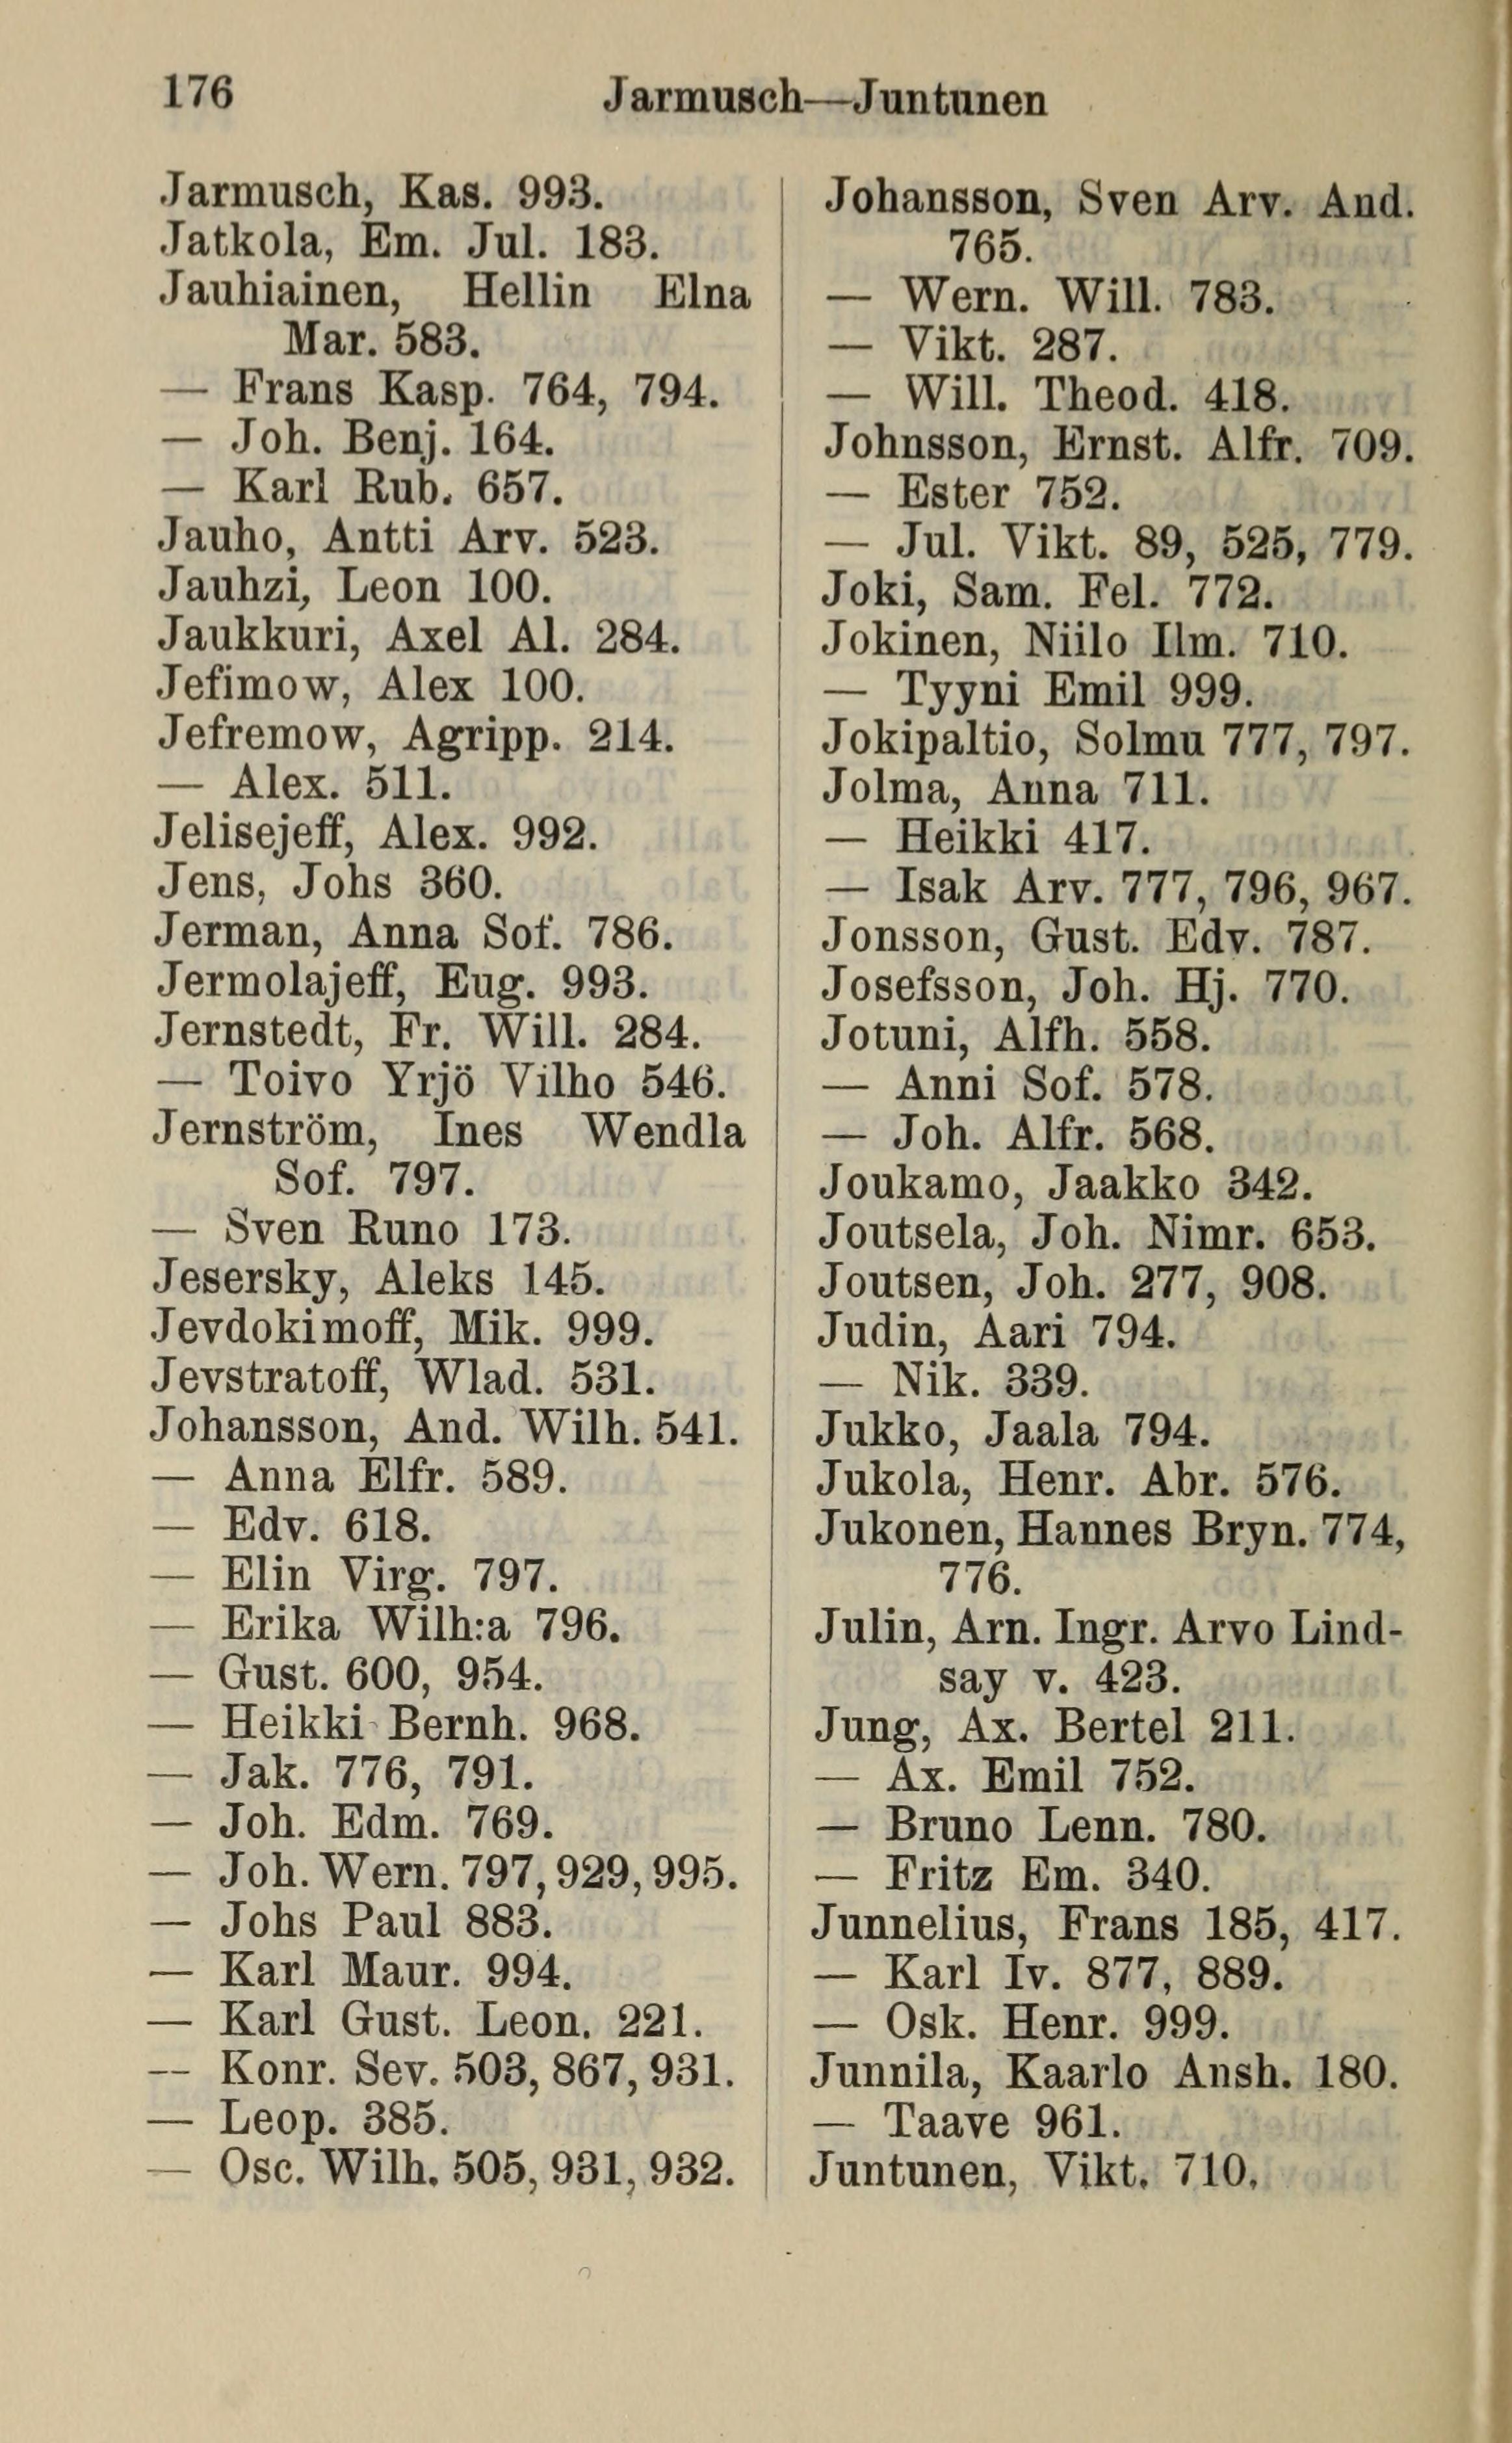 176
Jarmusch—Juntunen
Jarmusch, Kas. 993.
Jatkola, Em. Jul. 183.
Jauhiainen, Hellin Elna
Mar. 583.
— Frans Kasp. 764, 794.
— Joh. Benj. 164.
— Karl Rub. 657.
Jauho, Antti Arv. 523.
Jauhzi, Leon 100.
Jaukkuri, Axel Al. 284.
Jefimow, Alex 100.
Jefremow, Agripp. 214.
— Alex. 511.
Jelisejeff, Alex. 992.
Jens, Johs 360.
Jerman, Anna Sof. 786.
Jermolajeff, Eug. 993.
Jernstedt, Fr. Will. 284.
— Toivo Yrjö Vilho 546.
Jernström, Ines Wendla
Sof. 797.
— Sven Runo 173.
Jesersky, Aleks 145.
Jevdokimoff, Mik. 999.
Jevstratoff, Wlad. 531.
Johansson, And. Wilh. 541.
— Anna Elfr. 589.
— Edv. 618.
— Elin Virg. 797.
— Erika Wilh:a 796.
— Gust. 600, 954.
— Heikki Bernh. 968.
— Jak. 776, 791.
— Joh. Edm. 769.
— Joh. Wern. 797, 929, 995.
— Johs Paul 883.
— Karl Maur. 994.
— Karl Gust. Leon. 221.
— Konr. Sev. 503, 867, 931.
— Leop. 385.
— Osc. Wilh. 505, 931, 932.
Johansson, Sven Arv. And.
765.
— Wern. Will. 783.
— Vikt. 287.
— Will. Theod. 418.
Johnsson, Ernst. Alfr. 709.
— Ester 752.
— Jul. Vikt. 89, 525, 779.
Joki, Sam. Fel. 772.
Jokinen, Niilo Ilm. 710.
— Tyyni Emil 999.
Jokipaltio, Solmu 777, 797.
Jolma, Anna 711.
— Heikki 417.
— Isak Arv. 777, 796, 967.
Jonsson, Gust. Edv. 787.
Josefsson, Joh. Hj. 770.
Jotuni, Alfh. 558.
— Anni Sof. 578.
— Joh. Alfr. 568.
Joukamo, Jaakko 342.
Joutsela, Joh. Nimr. 653.
Joutsen, Joh. 277, 908.
Judin, Aari 794.
— Nik. 339.
Jukko, Jaala 794.
Jukola, Henr. Abr. 576.
Jukonen, Hannes Bryn. 774,
776.
Julin, Arn. Ingr. Arvo Lind-
say v. 423.
Jung, Ax. Bertel 211.
— Ax. Emil 752.
— Bruno Lenn. 780.
— Fritz Em. 340.
Junnelius, Frans 185, 417.
— Karl Iv. 877, 889.
— Osk. Henr. 999.
Junnila, Kaarlo Ansh. 180.
— Taave 961.
Juntunen, Vikt. 710.